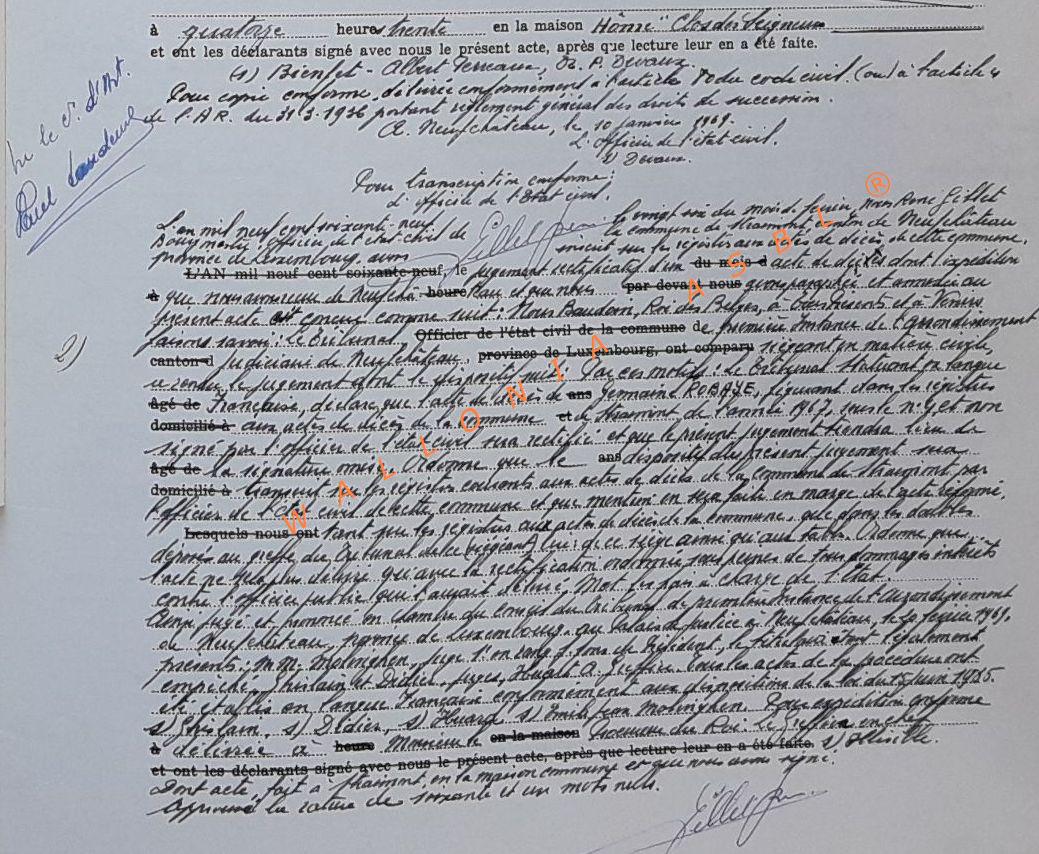 à quatorze heures trente en la maison Hôme "Clos des Seigneurs
et ont les déclarants signé avec nous le présent acte, après que lecture leur en a été faite.
(s) Bienfet - Albert P. Devaux.
Pour copie conforme, délivrée conformément à l'article du code civil (ou) à l'article 4
de l'A.R. du 31.3.1936 portant règlement général des droits de succession.
A Neufchâteau, le 10 janvier 1969.
L'Officier de l'état civil.
s) Devaux.
Pour transcription conforme:
L' officier de l'Etat civil.
L'an mil neuf cent soixante-neuf le vingt six du mois de février, Nous René Gillet
Bourgmestre, officier de l'état civil de la commune de Straimont, canton de Neufchâteau
province de Luxembourg, avons inscrit sur les registres aux actes de décès de cette commune,
L'AN mil neuf cent soixante-neuf, le jugement rectificatif d'un du mois d acte de décès dont l'expédition
à que nous avons reçu de Neufchâ- heure teau et que nous par devant nous avons paraphée et annexée au
présent acte est conçu comme suit: Nous Baudouin, Roi des Belges, à tous présents et à venir,
faisons savoir: Le Tribunal, Officier de l'état civil de la commune de première Instance de l'arrondissement
canton d Judiciaire de Neufchâteau, province de Luxembourg, ont comparu siégeant en matière civile,
a rendu le jugement dont le dispositif suit: Par ces motifs: Le Tribunal statuant en langue
âgé de Française, déclare que l'acte de décès de ans Germaine ROBAYE, figurant dans les registres
domicilié à aux actes de décès de la commune et de Straimont de l'année 1967, sous le n° 9 et non
signé par l'officier de l'état civil sera rectifié et que le présent jugement tiendra lieu de
âgé de la signature omise. Ordonne que le ans dispositif du présent jugement sera
domicilié à transcrit sur les registres courants aux actes de décès de la commune de Straimont par
l'officier de l'état civil de cette commune et que mention en sera faite en marge de l'acte réformé,
Lesquels nous ont tant sur les registres aux actes de décès de la commune, que dans les doubles
déposés au greffe du Tribunal de ce siège ainsi qu'aux tables. Ordonne que
l'acte ne sera plus délivré qu'avec la rectification ordonnée, sous peine de tous dommages intérêts
contre l'officier public qui l'aurait délivré. Met les frais à charge de l'Etat.
Ainsi jugé et prononcé en chambre du conseil du Tribunal de première Instance de l'Arrondissement
de Neufchâteau, province de Luxembourg, au Palais de justice à Neufchâteau, le février 1969.
présents: M.M. Molinghen, juge f.fons de Président, le titulaire étant légalement
empêché, Ghislain et Didier, juges, Huart A. Greffier. Tous les actes de la procédure ont
été établis en langue Française conformément aux dispositions de la loi du 15 juin 1935.
s) Ghislain, s) Didier, s) Huart, s) Emile Jean Molinghen. Pour expédition conforme
à délivrée à heure Monsieur le en la maison Procureur du Roi: Le Greffier en chef,
et ont les déclarants signé avec nous le présent acte, après que lecture leur en a été faite.
Dont acte, fait à Straimont, en la maison commune et que nous avons signé.
Approuvé la rature de soixante et un mots nuls.
2)
WALLONIA ASBL ®